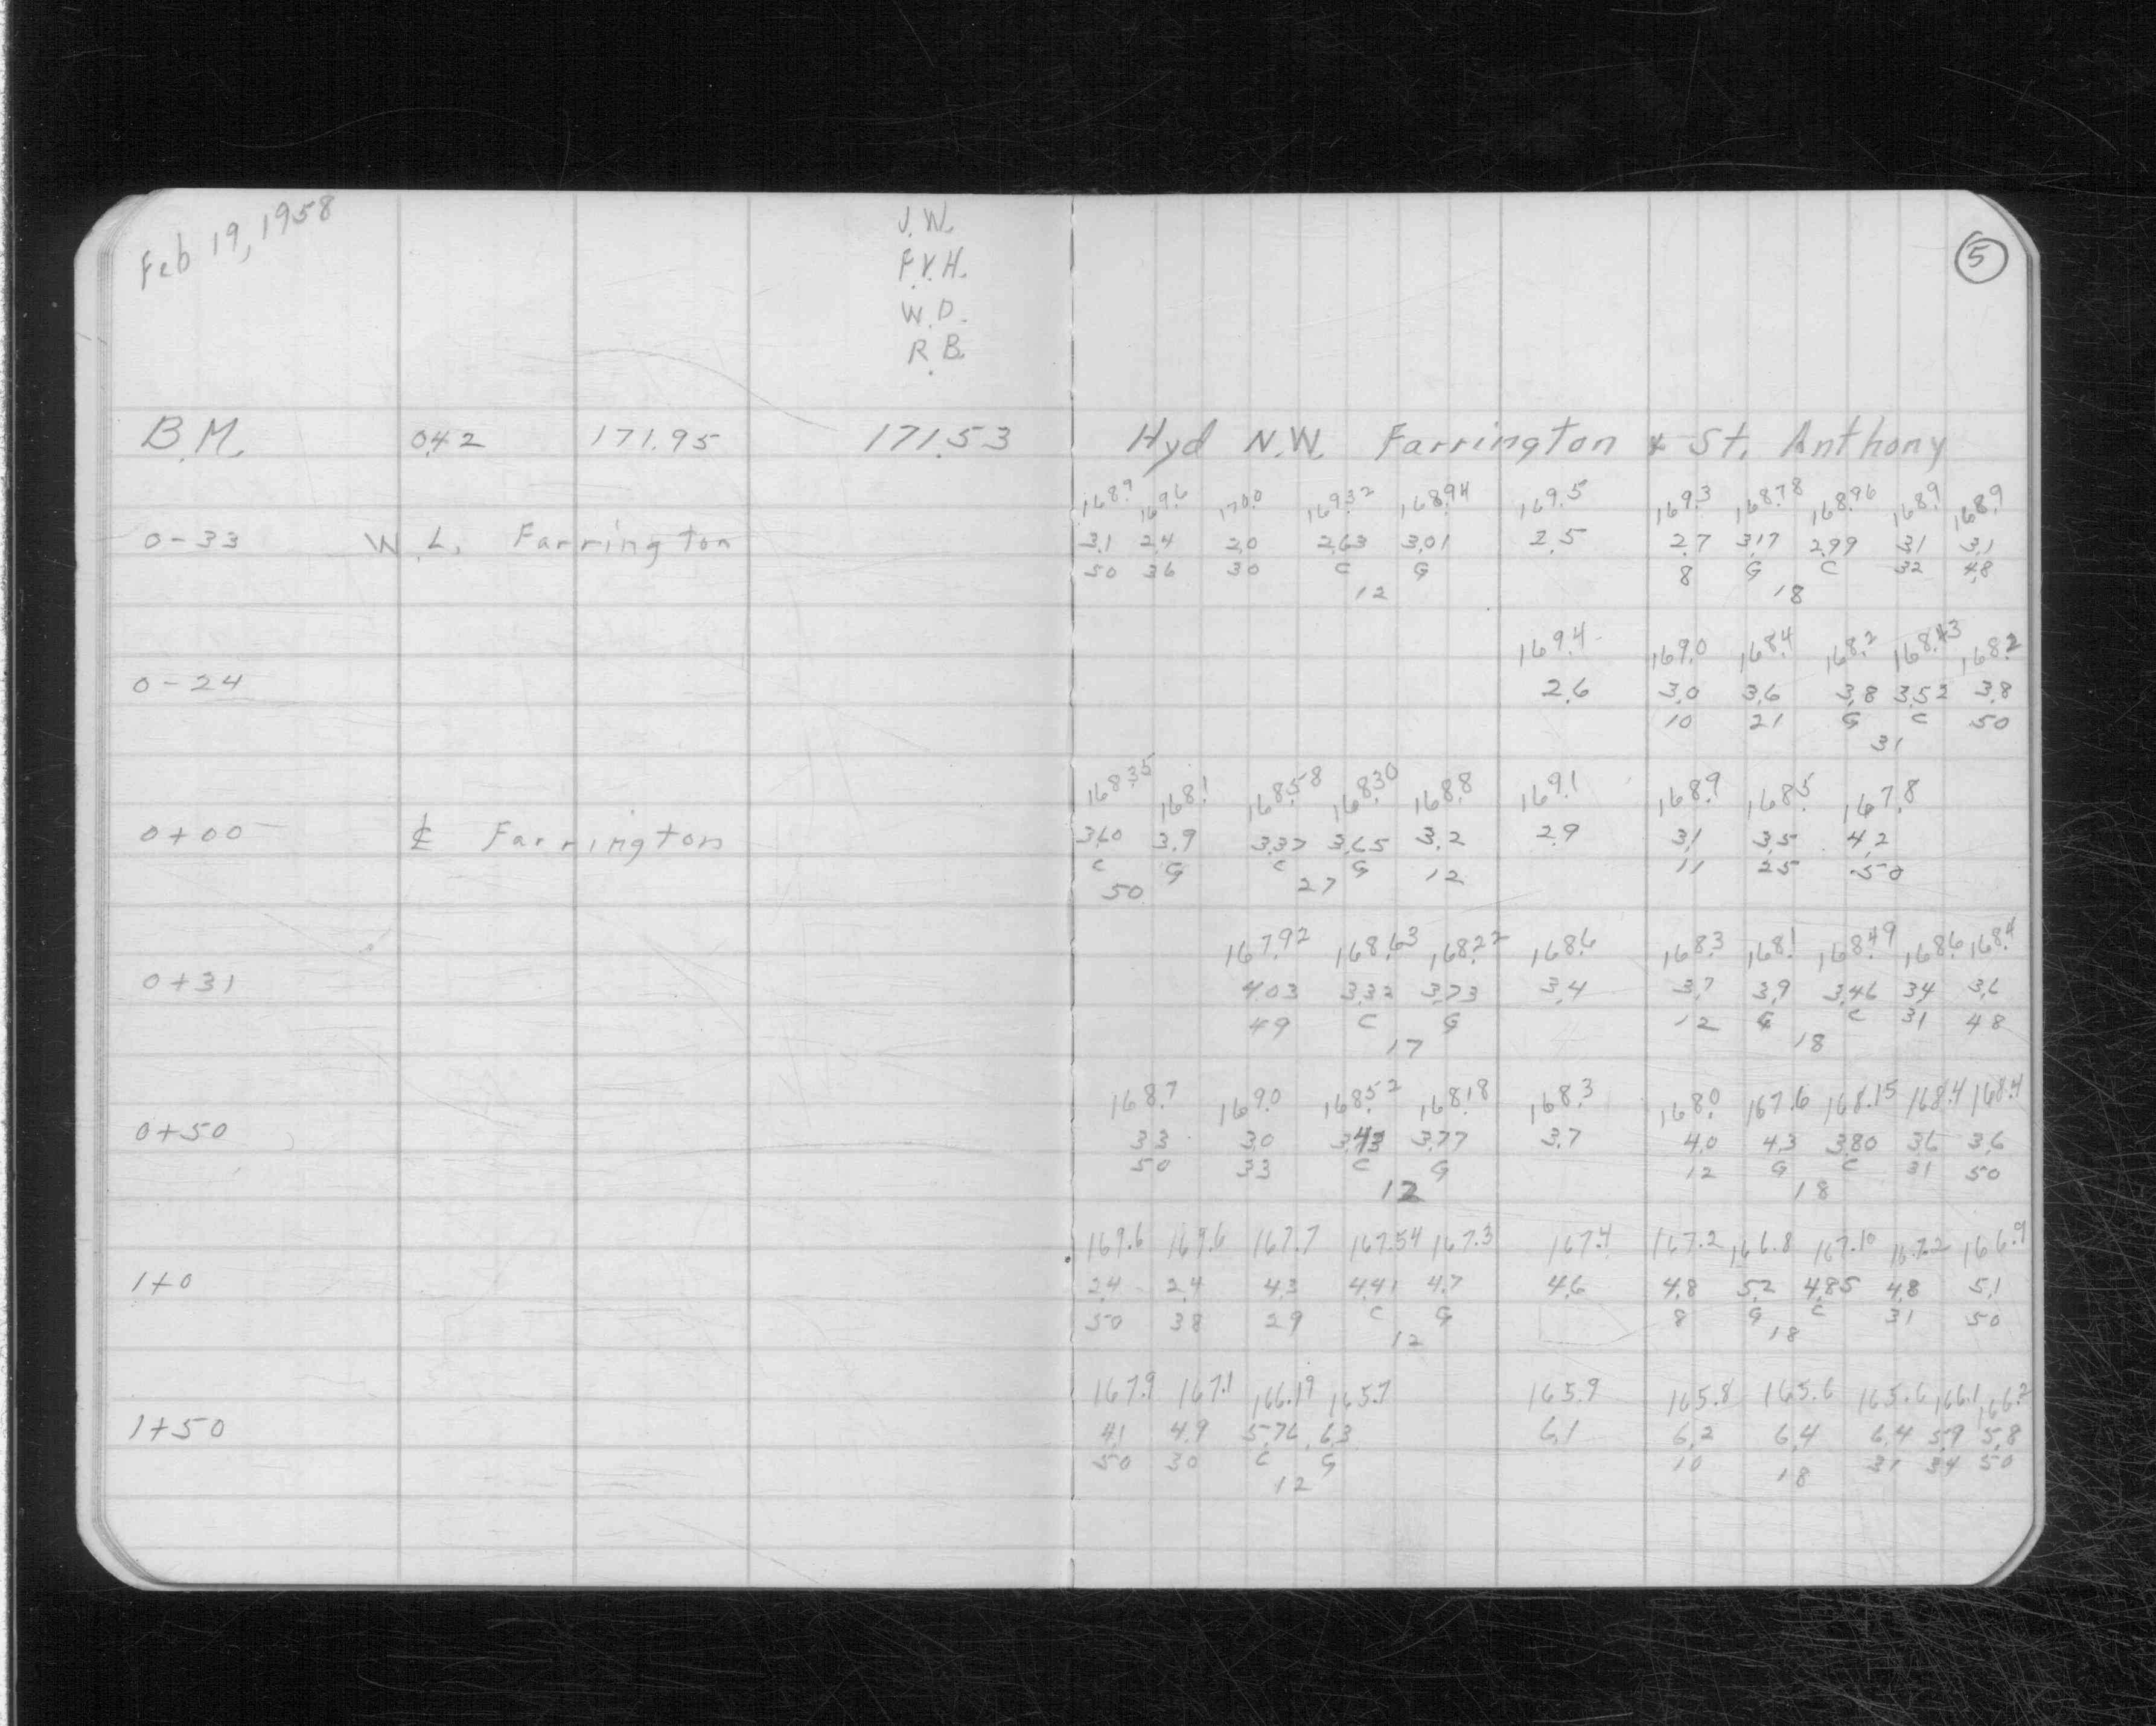 Feb 19, 1958
J.W.
F.V.H.
W.D.
R.B.
5
B.M. 0.42 171.95 171.53 Hyd N.W. Farrington & St. Anthony
168.9 169.6 170.0 169.32 168.94 169.5 169.3 168.78 168.96 168.9 168.9
0-33 W.L. Farrington 3.1 2.4 2.0 2.63 3.01 2.5 2.7 3.17 2.99 3.1 3.1
50 36 30 C G 8 G C 32 48
12 18
169.4 169.0 168.4 168.2 168.43 168.2
0-24 2.6 3.0 3.6 3.8 3.52 3.8
10 21 G C 50
31
168.35 168.1 168.58 168.30 168.8 169.1 168.9 168.5 167.8
0+00 ℄ Farrington 3.60 3.9 3.37 3.65 3.2 2.9 3.1 3.5 4.2
C G C G 12 11 25 50
50 27
167.92 168.63 168.22 168.6 168.3 168.1 168.49 168.6 168.4
0+31 4.03 3.32 3.73 3.4 3.7 3.9 3.46 3.4 3.6
49 C G 12 G C 31 48
17 18
168.7 169.0 168.52 168.18 168.3 168.0 167.6 168.15 168.4 168.4
0+50 3.3 3.0 3.43 3.77 3.7 4.0 4.3 3.80 3.6 3.6
50 33 C G 12 G C 31 50
12 18
169.6 169.6 167.7 167.54 167.3 167.4 167.2 166.8 167.10 167.2 166.9
1+0 2.4 2.4 4.3 4.41 4.7 4.6 4.8 5.2 4.85 4.8 5.1
50 38 29 C G 8 G C 31 50
12 18
167.9 167.1 166.19 165.7 165.9 165.8 165.6 165.6 166.1 166.2
1+50 4.1 4.9 5.76 6.3 6.1 6.2 6.4 6.4 5.9 5.8
50 30 C G 10 18 31 34 50
12